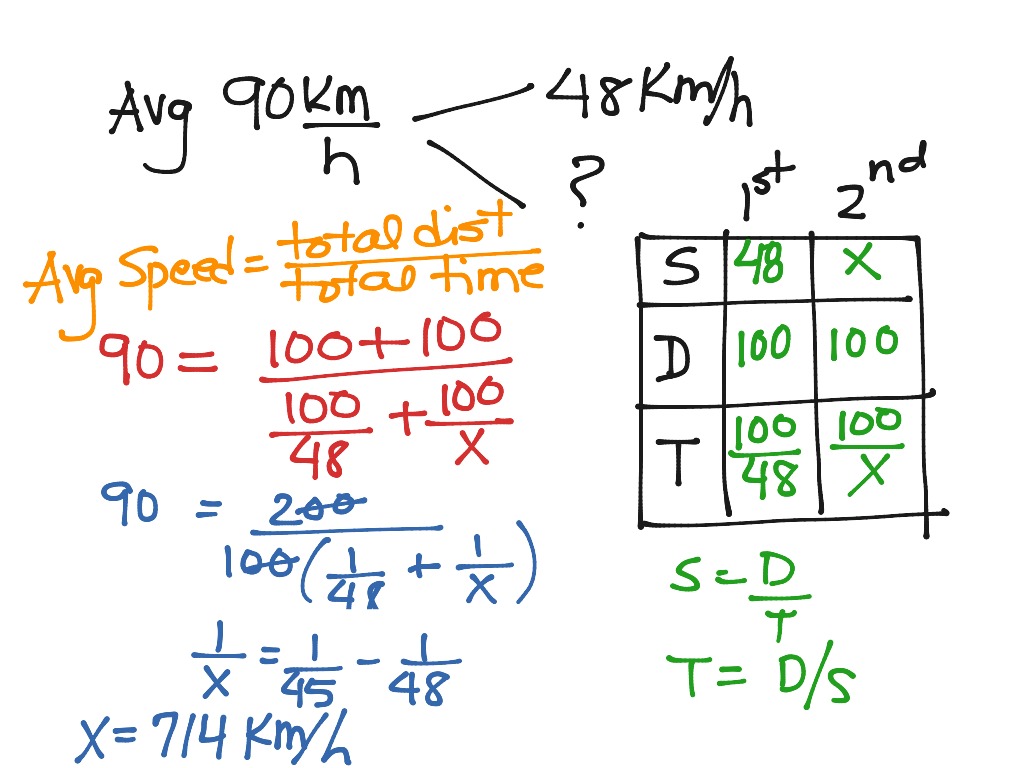 Avg 90 Km/h 48 Km/h
?
Avg Speed = total dist / total time
90 = (100 + 100) / (100/48 + 100/x)
90 = 200 / 100(1/48 + 1/x)
1/x = 1/45 - 1/48
x = 714 Km/h
1st 2nd
S 48 x
D 100 100
T 100/48 100/x
S = D/T
T = D/S